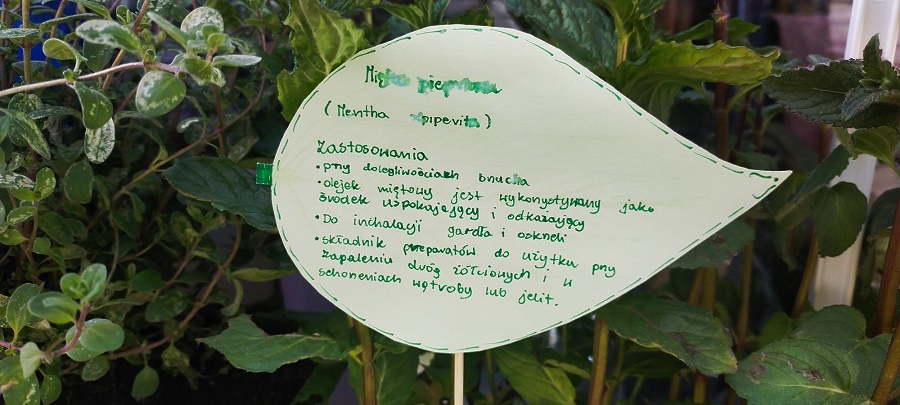 Mięta pieprzowa
(Mentha xpiperita)
Zastosowania
• przy dolegliwościach brzucha
• olejek miętowy jest wykorzystywany jako
środek uspokajający i odkażający
• Do inhalacji gardła i oskrzeli
• składnik preparatów do użytku przy
zapaleniu dróg żółciowych i w
schorzeniach wątroby lub jelit.